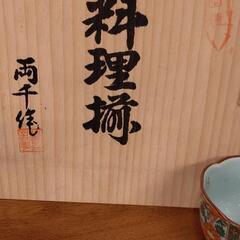 料理揃
両千作